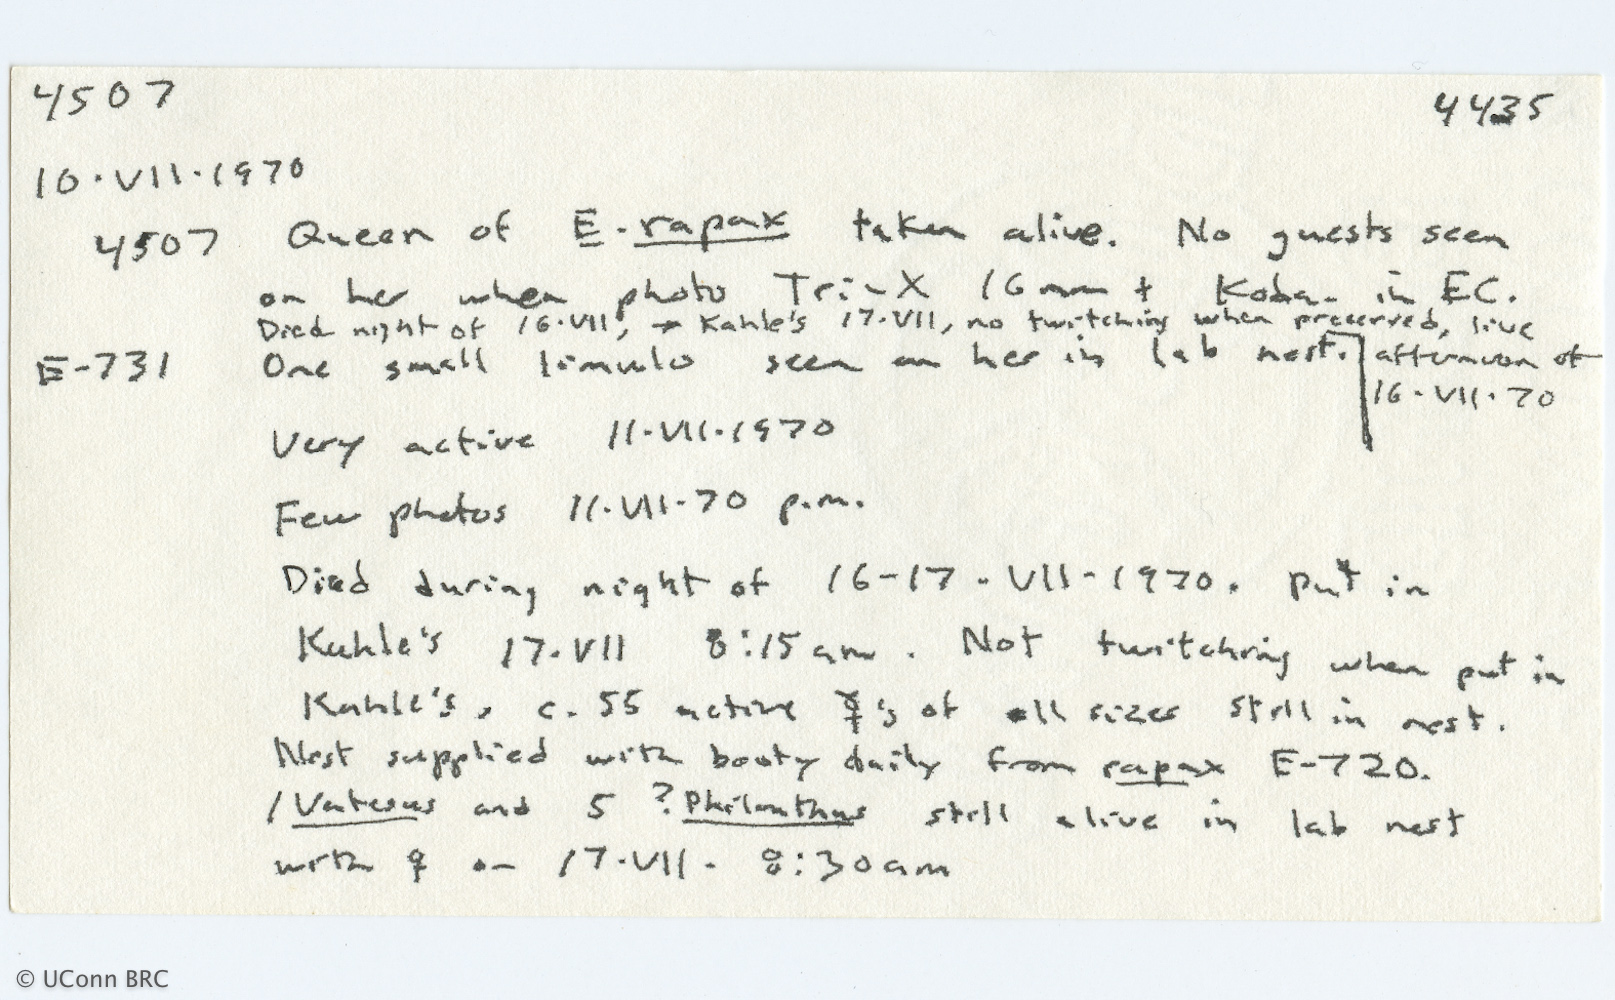 4507
4435
10·VII·1970
4507 Queen of E. rapax taken alive. No guests seen
on her when photo Tri-X 16mm + Koda- in EC.
Died night of 16·VII, → Kahle's 17·VII, no twitching when preserved, live
afternoon of
16·VII·70
E-731 One small limulo seen on her in lab nest.
Very active 11·VII·1970
Few photos 11·VII·70 p.m.
Died during night of 16-17-VII-1970. Put in
Kahle's 17·VII 8:15 am. Not twitching when put in
Kahle's, c. 55 active ☿'s of all sizes still in nest.
Nest supplied with booty daily from rapax E-720.
1 Vatesus and 5 ? Philanthus still alive in lab nest
with ☿ on 17·VII· 8:30am
© UConn BRC